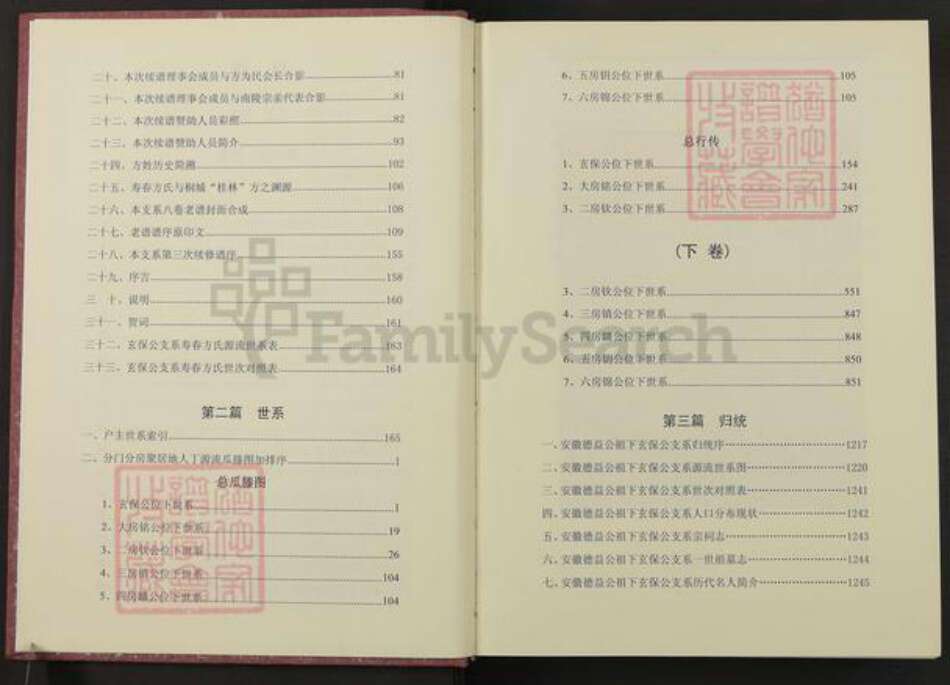 二十、本次续谱理事会成员与方为民会长合影 81
二十一、本次续谱理事会成员与南陵宗亲代表合影 81
二十二、本次续谱赞助人员彩照 82
二十三、本次续谱赞助人员简介 93
二十四、方姓历史简溯 102
二十五、寿春方氏与桐城“桂林”方之渊源 106
二十六、本支系八卷老谱封面合成 108
二十七、老谱谱序原印文 109
二十八、本支系第三次续修谱序 155
二十九、序言 158
三 十、说明 160
三十一、贺词 161
三十二、玄保公支系寿春方氏源流世系表 163
三十三、玄保公支系寿春方氏世次对照表 164
第二篇 世系
一、户主世系索引 165
二、分门分房聚居地人丁源流瓜滕图加排序 1
总瓜滕图
1、玄保公位下世系 1
2、大房铭公位下世系 19
3、二房钦公位下世系 26
4、三房镇公位下世系 104
5、四房 公位下世系 104
6、五房 公位下世系 105
7、六房锡公位下世系 105
总行传
1、玄保公位下世系 154
2、大房铭公位下世系 241
3、二房钦公位下世系 287
(下 卷)
3、二房钦公位下世系 551
4、三房镇公位下世系 847
5、四房 公位下世系 848
6、五房 公位下世系 850
7、六房锡公位下世系 851
第三篇 归统
一、安徽德益公祖下玄保公支系归统序 1217
二、安徽德益公祖下玄保公支系源流世系图 1220
三、安徽德益公祖下玄保公支系世次对照表 1241
四、安徽德益公祖下玄保公支系人口分布现状 1242
五、安徽德益公祖下玄保公支系宗祠志 1243
六、安徽德益公祖下玄保公支系一世祖墓志 1244
七、安徽德益公祖下玄保公支系历代名人简介 1245
FamilySearch